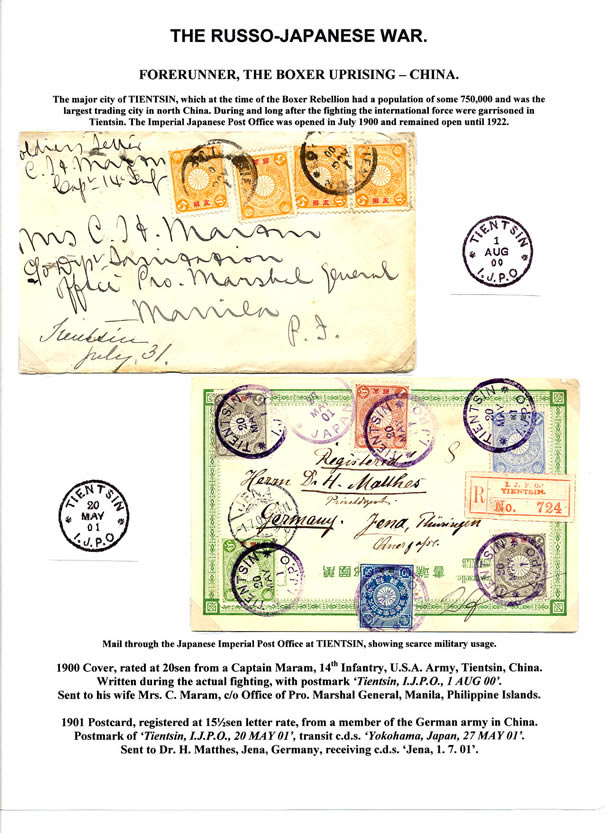 THE RUSSO-JAPANESE WAR.
FORERUNNER, THE BOXER UPRISING – CHINA.
The major city of TIENTSIN, which at the time of the Boxer Rebellion had a population of some 750,000 and was the
largest trading city in north China. During and long after the fighting the international force were garrisoned in
Tientsin. The Imperial Japanese Post Office was opened in July 1900 and remained open until 1922.
Soldiers Letter
C. H Maram
Capt 14 Inf
Mrs C. H. Maram
C/o Dept Sanitation
Office Pro. Marshal General
Manila
P. I.
Tientsin
July, 31.
TIENTSIN
1
AUG
00
I.J.P.O
TIENTSIN
20
MAY
01
I.J.P.O
TIENTSIN
20
MAY
I.J.P.O
MAY
01
JAPAN
TIENTSIN
20
MAY
TIENTSIN
20
MAY
01
I.J.P.O
Registered
8
Herrn Dr. H. Matthes
JENA
Germany. Jena, Thüringen
I. J. P. O.
TIENTSIN.
R
No. 724
TIENTSIN
20
MAY
I.J.P.O
TIENTSIN
20
Mail through the Japanese Imperial Post Office at TIENTSIN, showing scarce military usage.
1900 Cover, rated at 20sen from a Captain Maram, 14th Infantry, U.S.A. Army, Tientsin, China.
Written during the actual fighting, with postmark ‘Tientsin, I.J.P.O., 1 AUG 00’.
Sent to his wife Mrs. C. Maram, c/o Office of Pro. Marshal General, Manila, Philippine Islands.
1901 Postcard, registered at 15½sen letter rate, from a member of the German army in China.
Postmark of ‘Tientsin, I.J.P.O., 20 MAY 01’, transit c.d.s. ‘Yokohama, Japan, 27 MAY 01’.
Sent to Dr. H. Matthes, Jena, Germany, receiving c.d.s. ‘Jena, 1. 7. 01’.